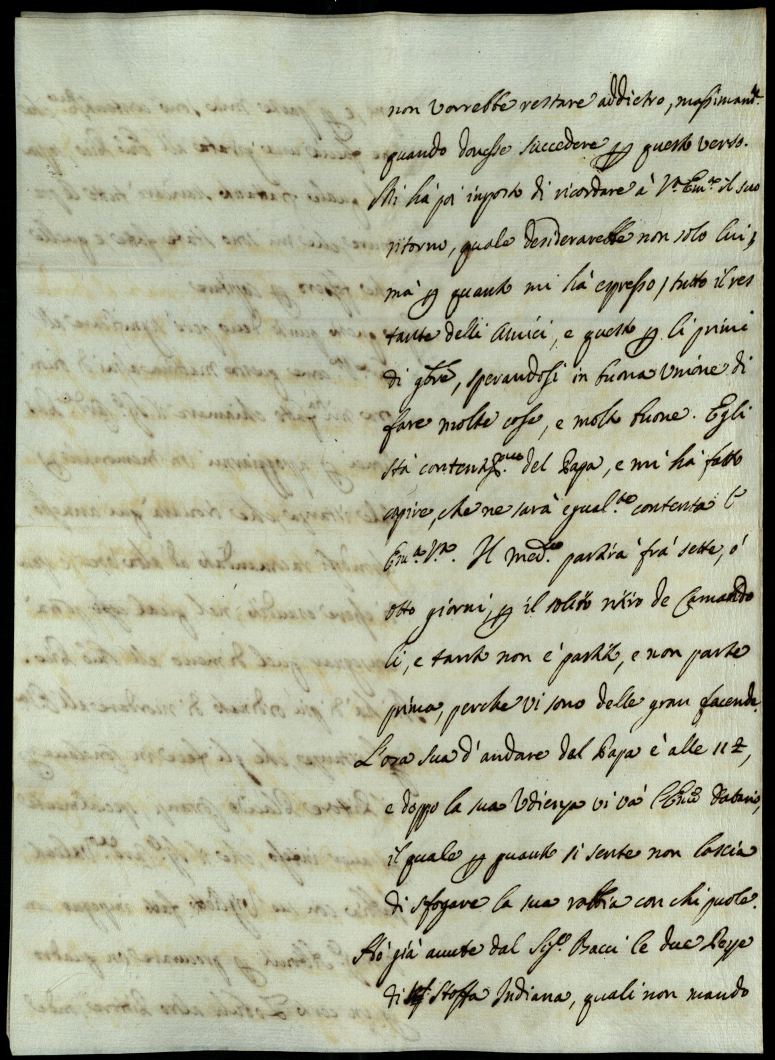 non vorrebbe restare addietro, massimam.te
quando dovesse succedere per questo verso.
Mi hà poi imposto di ricordare à V.a Em.za il suo
ritorno, quale desiderarebbe non solo lui,
mà per quanto mi hà espresso, tutto il res
tante delli Amici, e questo per li primi
di 9bre, sperandosi in buona Unione di
fare molte cose, e molto buone. Egli
stà contentis.mo del Papa, e mi hà fatto
capire, che ne sarà egual.te contenta l'
Em.a V.ra. Il med.mo partirà frà sette, ò
otto giorni, per il solito ritiro de Camaldo
li, e tanto non è partito, e non parte
prima, perche vi sono delle gran facende.
L'ora sua d'andare dal Papa è alle 11
e doppo la sua Udienza vi và l'Em.o Datario,
il quale per quanto si sente non lascia
di sfogare la sua rabbia con chi puole.
Hò già avute dal Sig.r Bacci le due Pezze
di Stoffa Indiana, quali non mando